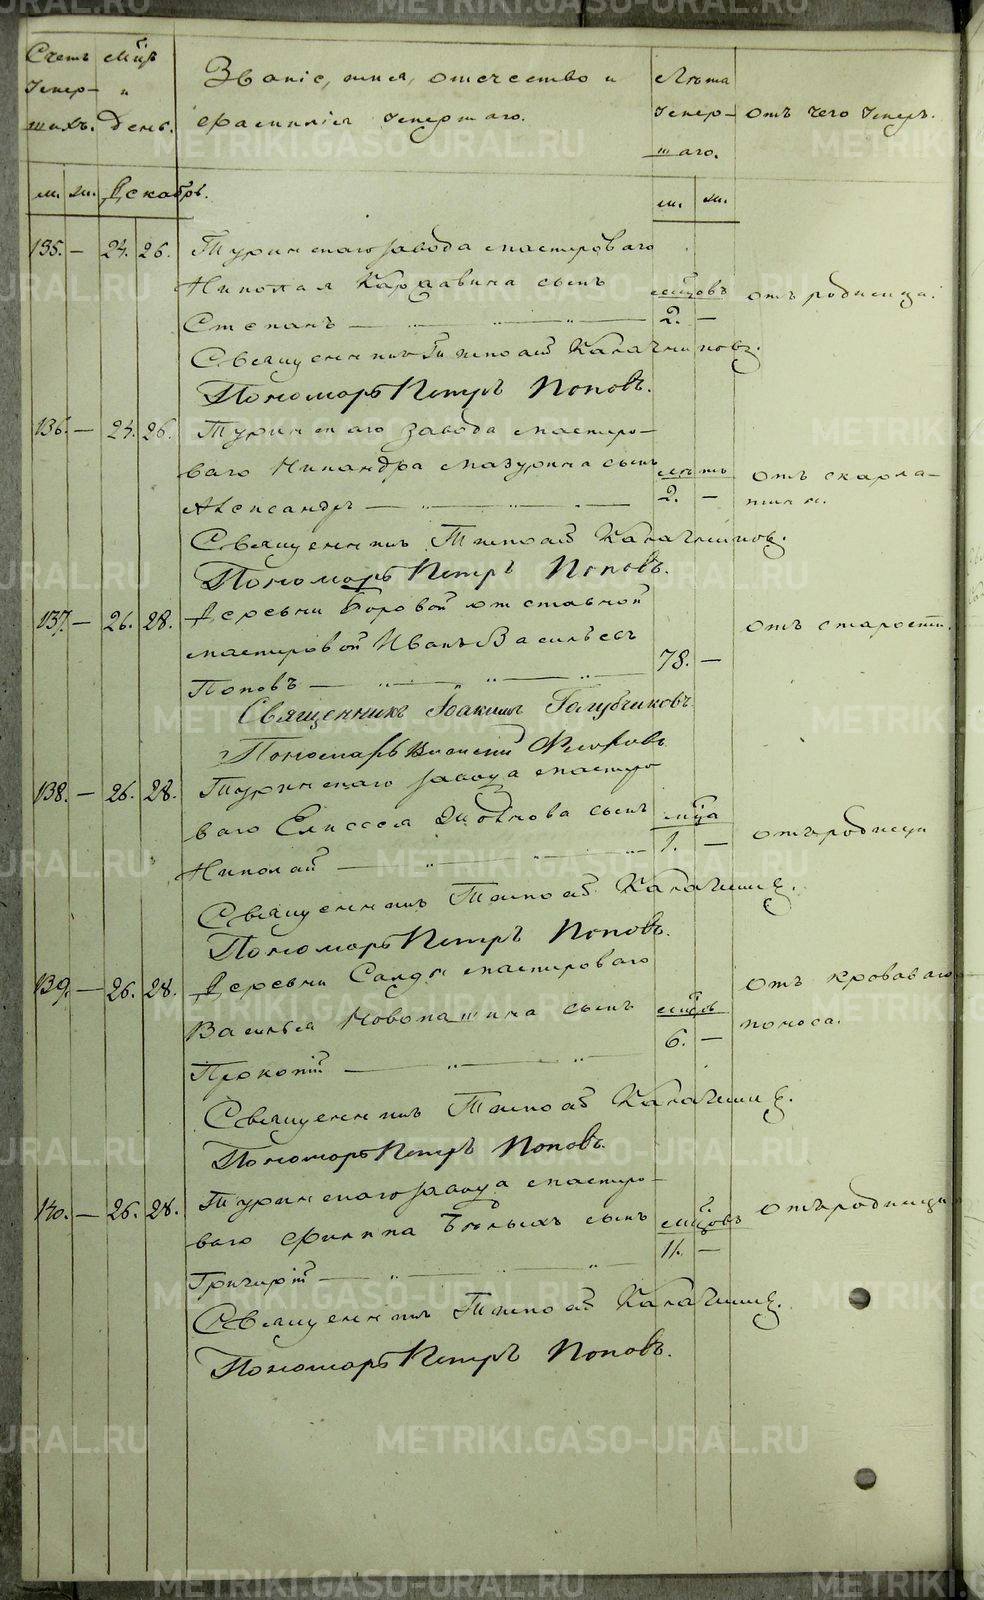 Счетъ Умер-шихъ.
Мцъ и День.
Званіе, имя, отечество и фамилія умершаго.
Лѣта Умер-шаго.
Отъ чего Умеръ.
м. ж. Декабрь. м. ж.
135. — 24. 26. Туринскаго завода мастероваго
Николая Кардавина сынъ мѣцовъ отъ родимца.
Степанъ — „ — „ — 2. —
Священникъ Тимофей Калачниковъ.
Пономарь Петръ Поповъ.
136. — 24. 26. Туринскаго завода мастеро-
ваго Никандра Мазурина сынъ лѣтъ отъ скарла-
Александръ — „ — „ — 2. — тины.
Священникъ Тимофей Калачниковъ.
Пономарь Петръ Поповъ.
137. — 26. 28. Деревни Боровой отставной отъ старости.
мастеровой Иванъ Васильевъ
Поповъ — „ — „ — „ — 78. —
Священникъ Іоакимъ Голубчиковъ
Пономарь Флоровъ
138. — 26. 28. Туринскаго завода мастеро-
ваго Елисея сынъ мца отъ родимца
Николай — „ — „ — „ — 1. —
Священникъ Тимофей
Пономарь Петръ Поповъ.
139. — 26. 28. Деревни Салды мастероваго отъ кроваваго
Василья Новопашина сынъ мцовъ поноса.
Прокопій — „ — „ — 6. —
Священникъ Тимофей
Пономарь Петръ Поповъ.
140. — 26. 28. Туринскаго завода мастеро- отъ родимца
ваго Филиппа Бѣлыхъ сынъ мѣцовъ
Григорій — „ — „ — „ — 11. —
Священникъ Тимофей
Пономарь Петръ Поповъ.
METRIKI.GASO-URAL.RU